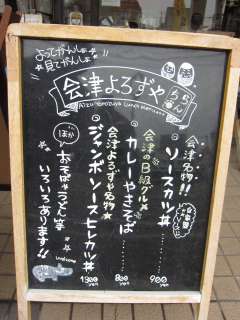 よってがんしょ
見てがんしょ
会津よろずや
らん
Aizu Yorozuya Lunch Menu
会津名物!!
ソースカツ丼
900 yen
会津のB級グルメ
カレーやきそば
800 yen
会津よろずや名物★
ジャンボソースヒレカツ丼
1300 yen
ほか
おそば、うどん等
いろいろあります!!
Welcome